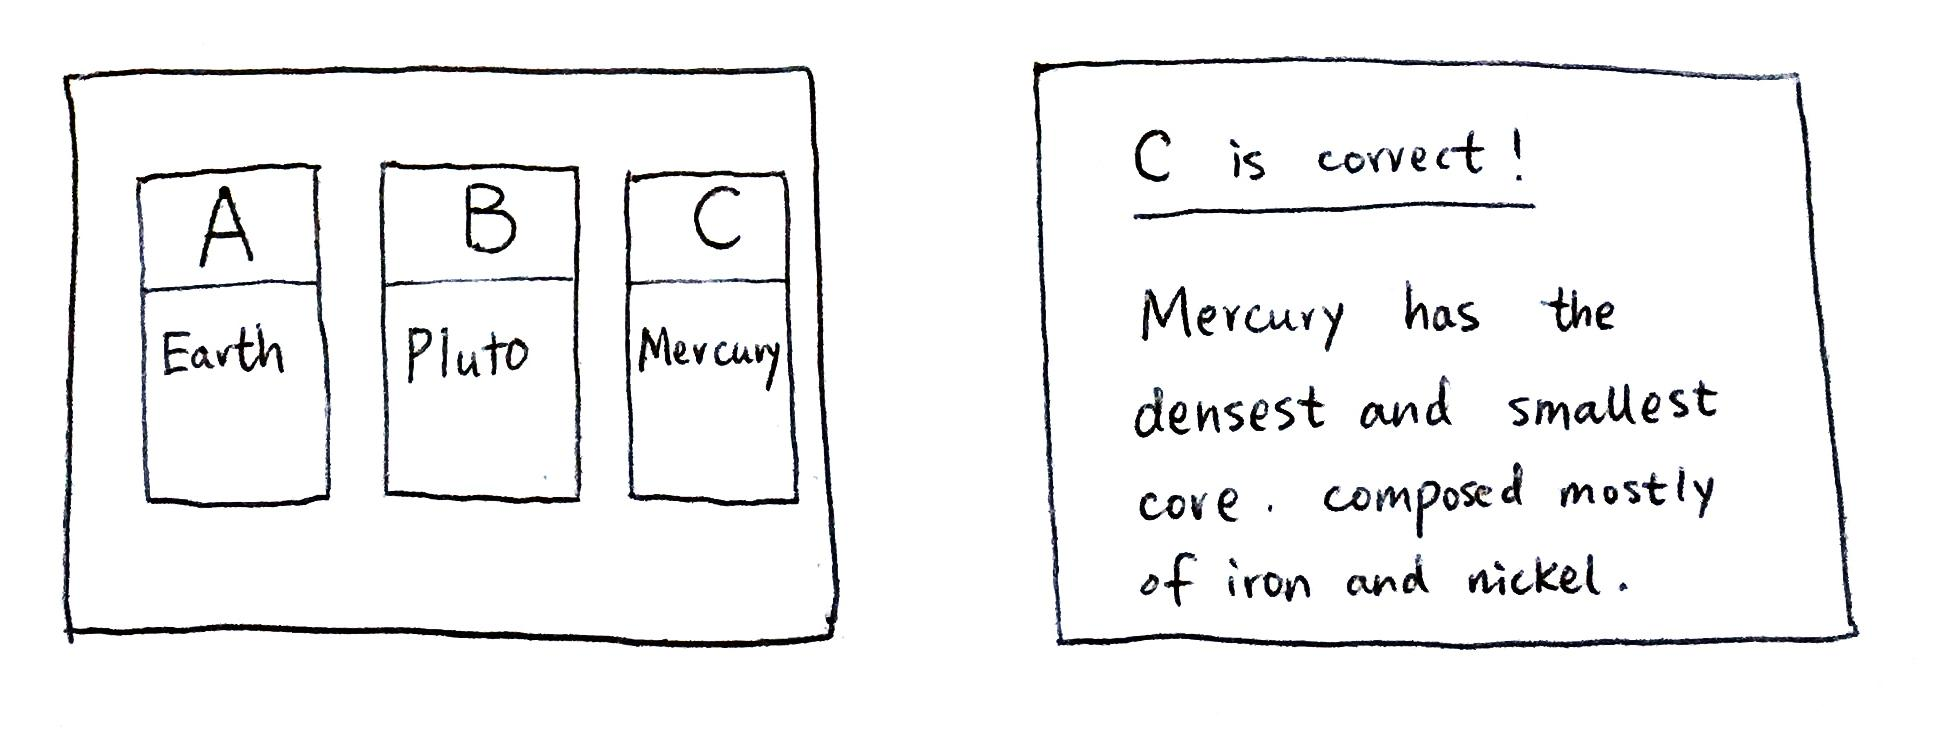 A
Earth
B
Pluto
C
Mercury
C is correct!
Mercury has the
densest and smallest
core. composed mostly
of iron and nickel.